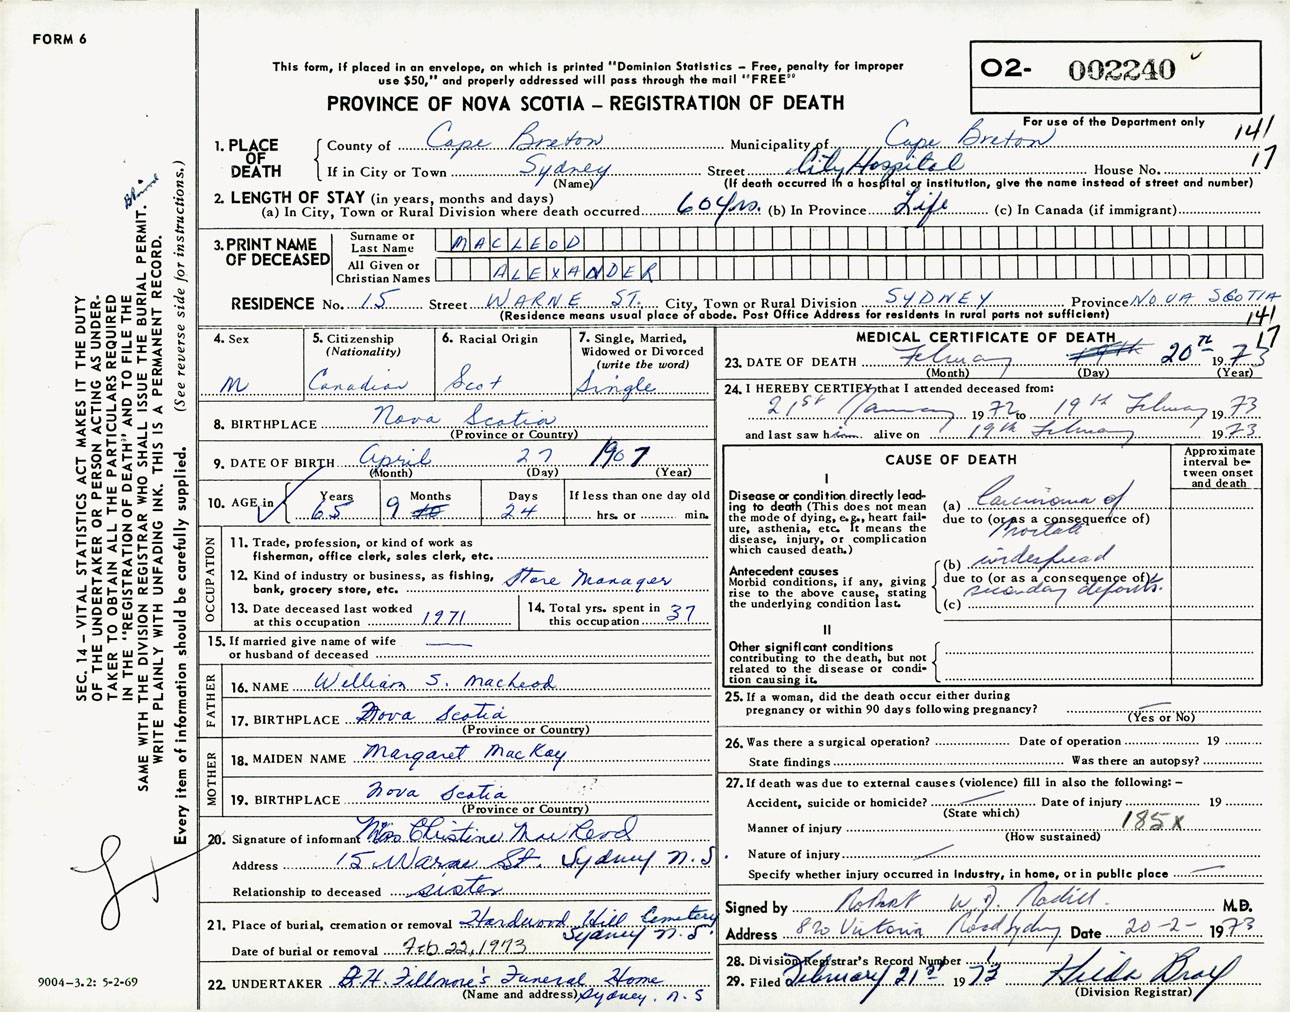 FORM 6
This form, if placed in an envelope, on which is printed "Dominion Statistics – Free, penalty for improper
use $50," and properly addressed will pass through the mail "FREE"
PROVINCE OF NOVA SCOTIA – REGISTRATION OF DEATH
02- 002240
For use of the Department only
141
17
1. PLACE OF DEATH
County of Cape Breton Municipality of Cape Breton
If in City or Town Sydney Street City Hospital House No.
(Name) (If death occurred in a hospital or institution, give the name instead of street and number)
2. LENGTH OF STAY (in years, months and days)
(a) In City, Town or Rural Division where death occurred 60 yrs. (b) In Province Life (c) In Canada (if immigrant)
3. PRINT NAME OF DECEASED
Surname or Last Name MACLEOD
All Given or Christian Names ALEXANDER
RESIDENCE No. 15 Street WARNE ST. City, Town or Rural Division SYDNEY Province NOVA SCOTIA
(Residence means usual place of abode. Post Office Address for residents in rural parts not sufficient)
141
17
4. Sex
M
5. Citizenship
(Nationality)
Canadian
6. Racial Origin
Scot
7. Single, Married,
Widowed or Divorced
(write the word)
Single
8. BIRTHPLACE Nova Scotia
(Province or Country)
9. DATE OF BIRTH April 27 1907
(Month) (Day) (Year)
10. AGE in
Years
65
Months
9 10
Days
24
If less than one day old
hrs. or min.
OCCUPATION
11. Trade, profession, or kind of work as
fisherman, office clerk, sales clerk, etc.
12. Kind of industry or business, as fishing,
bank, grocery store, etc. Store Manager
13. Date deceased last worked
at this occupation 1971
14. Total yrs. spent in
this occupation 37
15. If married give name of wife
or husband of deceased
FATHER
16. NAME William S. MacLeod
17. BIRTHPLACE Nova Scotia
(Province or Country)
MOTHER
18. MAIDEN NAME Margaret MacKay
19. BIRTHPLACE Nova Scotia
(Province or Country)
20. Signature of informant Miss Christine MacLeod
Address 15 Warne St. Sydney N.S.
Relationship to deceased sister
21. Place of burial, cremation or removal Hardwood Hill Cemetery
Sydney N.S.
Date of burial or removal Feb 22, 1973
22. UNDERTAKER D.H. Fillmore's Funeral Home
(Name and address) Sydney. N.S
MEDICAL CERTIFICATE OF DEATH
23. DATE OF DEATH February 19th 20TH 1973
(Month) (Day) (Year)
24. I HEREBY CERTIFY that I attended deceased from:
21st January 1972 to 19th February 1973
and last saw him alive on 19th February 1973
CAUSE OF DEATH
Approximate
interval be-
tween onset
and death
I
Disease or condition directly lead-
ing to death (This does not mean
the mode of dying, e.g., heart fail-
ure, asthenia, etc. It means the
disease, injury, or complication
which caused death.)
(a) Carcinoma of
due to (or as a consequence of)
Prostate
Antecedent causes
Morbid conditions, if any, giving
rise to the above cause, stating
the underlying condition last.
(b) widespread
due to (or as a consequence of)
secondary deposits.
(c)
II
Other significant conditions
contributing to the death, but not
related to the disease or condi-
tion causing it.
25. If a woman, did the death occur either during
pregnancy or within 90 days following pregnancy?
(Yes or No)
26. Was there a surgical operation? Date of operation 19
State findings Was there an autopsy?
27. If death was due to external causes (violence) fill in also the following: –
Accident, suicide or homicide? Date of injury 19
(State which)
Manner of injury 185X
(How sustained)
Nature of injury
Specify whether injury occurred in Industry, in home, or in public place
Signed by Robert W. M.D.
Address 820 Victoria Road Sydney Date 20-2-1973
28. Division Registrar's Record Number 1
29. Filed February 21st 1973 Hilda Bray
(Division Registrar)
SEC. 14 – VITAL STATISTICS ACT MAKES IT THE DUTY
OF THE UNDERTAKER OR PERSON ACTING AS UNDER-
TAKER TO OBTAIN ALL THE PARTICULARS REQUIRED
IN THE "REGISTRATION OF DEATH" AND TO FILE THE
SAME WITH THE DIVISION REGISTRAR WHO SHALL ISSUE THE BURIAL PERMIT.
WRITE PLAINLY WITH UNFADING INK. THIS IS A PERMANENT RECORD.
Every item of information should be carefully supplied. (See reverse side for instructions.)
9004-3.2: 5-2-69